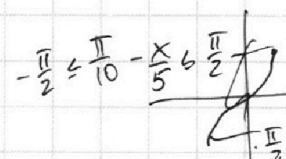 -π/2 ≤ π/10 - x/5 ≤ π/2
π/2